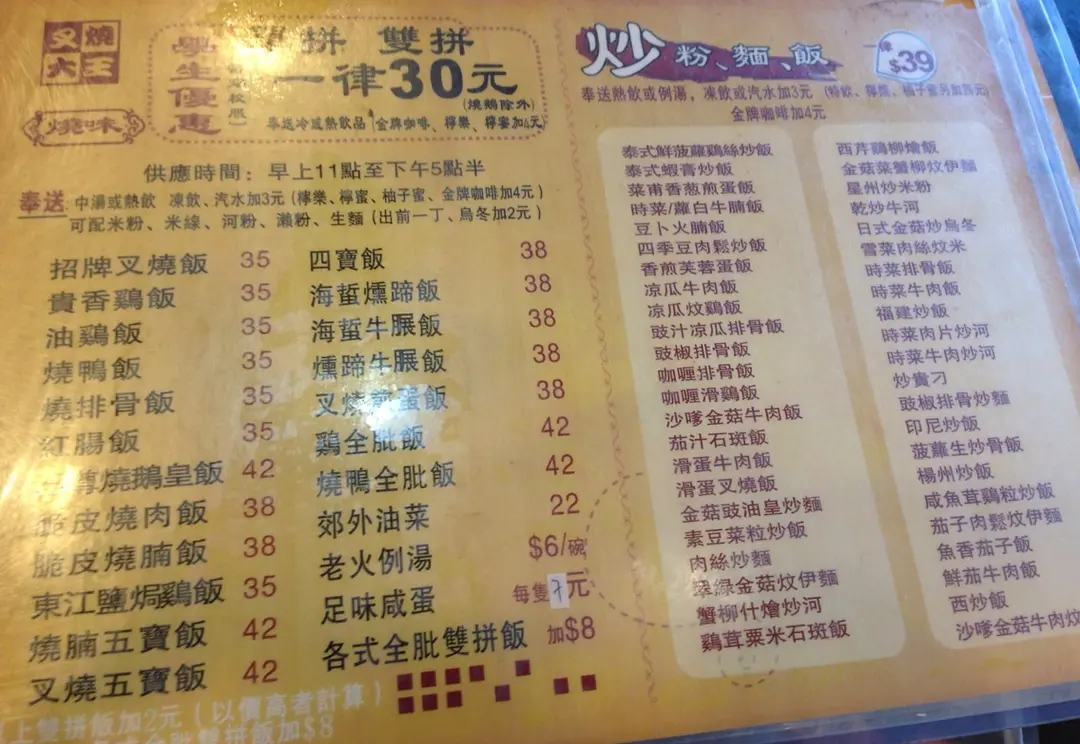 叉燒
大王
燒味
學生優惠
單拼 雙拼
一律30元
(燒鵝除外)
奉送冷或熱飲品 (金牌咖啡、檸樂、檸蜜加4元)
供應時間：早上11點至下午5點半
奉送 中湯或熱飲 凍飲、汽水加3元 (檸樂、檸蜜、柚子蜜、金牌咖啡加4元)
可配米粉、米線、河粉、瀨粉、生麵 (出前一丁、烏冬加2元)
招牌叉燒飯 35
貴香鷄飯 35
油鷄飯 35
燒鴨飯 35
燒排骨飯 35
紅腸飯 35
燒鵝皇飯 42
脆皮燒肉飯 38
脆皮燒腩飯 38
東江鹽焗鷄飯 35
燒腩五寶飯 42
叉燒五寶飯 42
四寶飯 38
海蜇燻蹄飯 38
海蜇牛𦟌飯 38
燻蹄牛𦟌飯 38
叉燒煎蛋飯 38
鷄全髀飯 42
燒鴨全髀飯 42
郊外油菜 22
老火例湯 $6/碗
足味咸蛋 每隻7元
各式全髀雙拼飯 加$8
上雙拼飯加2元 (以價高者計算)
各式全髀雙拼飯加$8
炒粉、麵、飯
一律$39
奉送熱飲或例湯，凍飲或汽水加3元 (特飲、檸樂、柚子蜜另加四元)
金牌咖啡加4元
泰式鮮菠蘿鷄絲炒飯
泰式蝦膏炒飯
菜甫香葱煎蛋飯
時菜/蘿白牛腩飯
豆卜火腩飯
四季豆肉鬆炒飯
香煎芙蓉蛋飯
凉瓜牛肉飯
凉瓜炆鷄飯
豉汁凉瓜排骨飯
豉椒排骨飯
咖喱排骨飯
咖喱滑鷄飯
沙嗲金菇牛肉飯
茄汁石斑飯
滑蛋牛肉飯
滑蛋叉燒飯
金菇豉油皇炒麵
素豆菜粒炒飯
肉絲炒麵
翠緑金菇炆伊麵
蟹柳什燴炒河
鷄茸粟米石斑飯
西芹鷄柳燴飯
金菇菜蟹柳炆伊麵
星州炒米粉
乾炒牛河
日式金菇炒烏冬
雪菜肉絲炆米
時菜排骨飯
時菜牛肉飯
福建炒飯
時菜肉片炒河
時菜牛肉炒河
炒貴刁
豉椒排骨炒麵
印尼炒飯
菠蘿生炒骨飯
楊州炒飯
咸魚茸鷄粒炒飯
茄子肉鬆炆伊麵
魚香茄子飯
鮮茄牛肉飯
西炒飯
沙嗲金菇牛肉炆